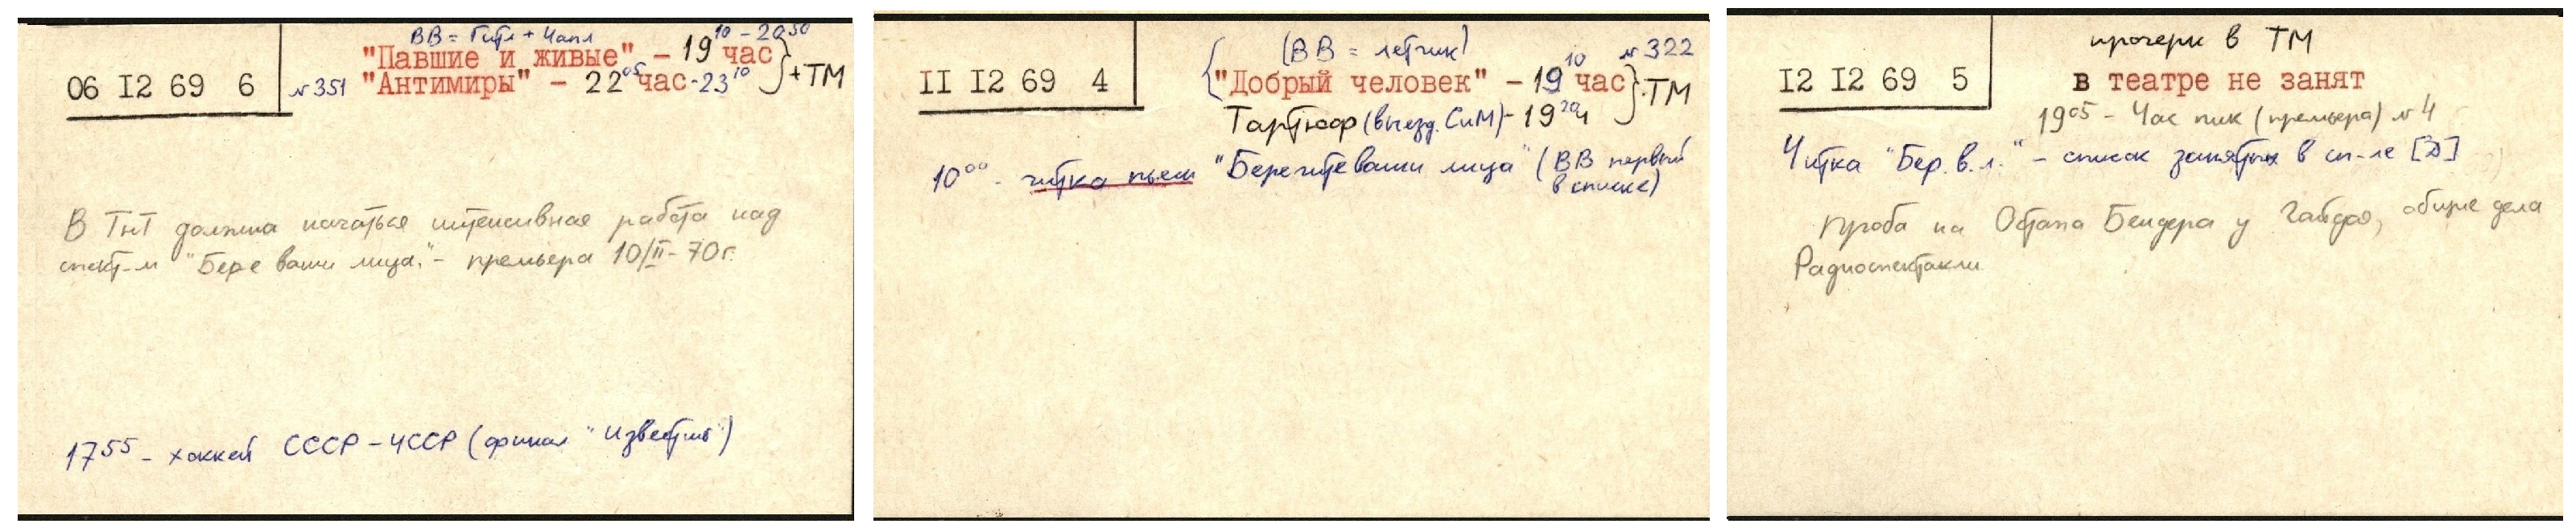 ВВ = Гитл + Чапл
06 I2 69 6
"Павшие и живые" – 19¹⁰ час – 20⁵⁰
№351 "Антимиры" – 22⁰⁵ час - 23¹⁰ } + ТМ
В ТнТ должна начаться интенсивная работа над
спект-м "Бере ваши лица." – премьера 10/II – 70г.
17⁵⁵ – хоккей СССР – ЧССР (финал "Известий")
(ВВ = летчик) №322
II I2 69 4
"Добрый человек" – 19¹⁰ час } ТМ
Тартюф (выезд. СиМ) – 19²⁰ч
10⁰⁰ – читка пьесы "Берегите ваши лица" (ВВ первый
в списке)
прочерк в ТМ
I2 I2 69 5
в театре не занят
19⁰⁵ – Час пик (премьера) №4
Читка "Бер. в. л." – список занятых в сп-ле [Д]
Проба на Остапа Бендера у Гайдая, общие дела
Радиоспектакли